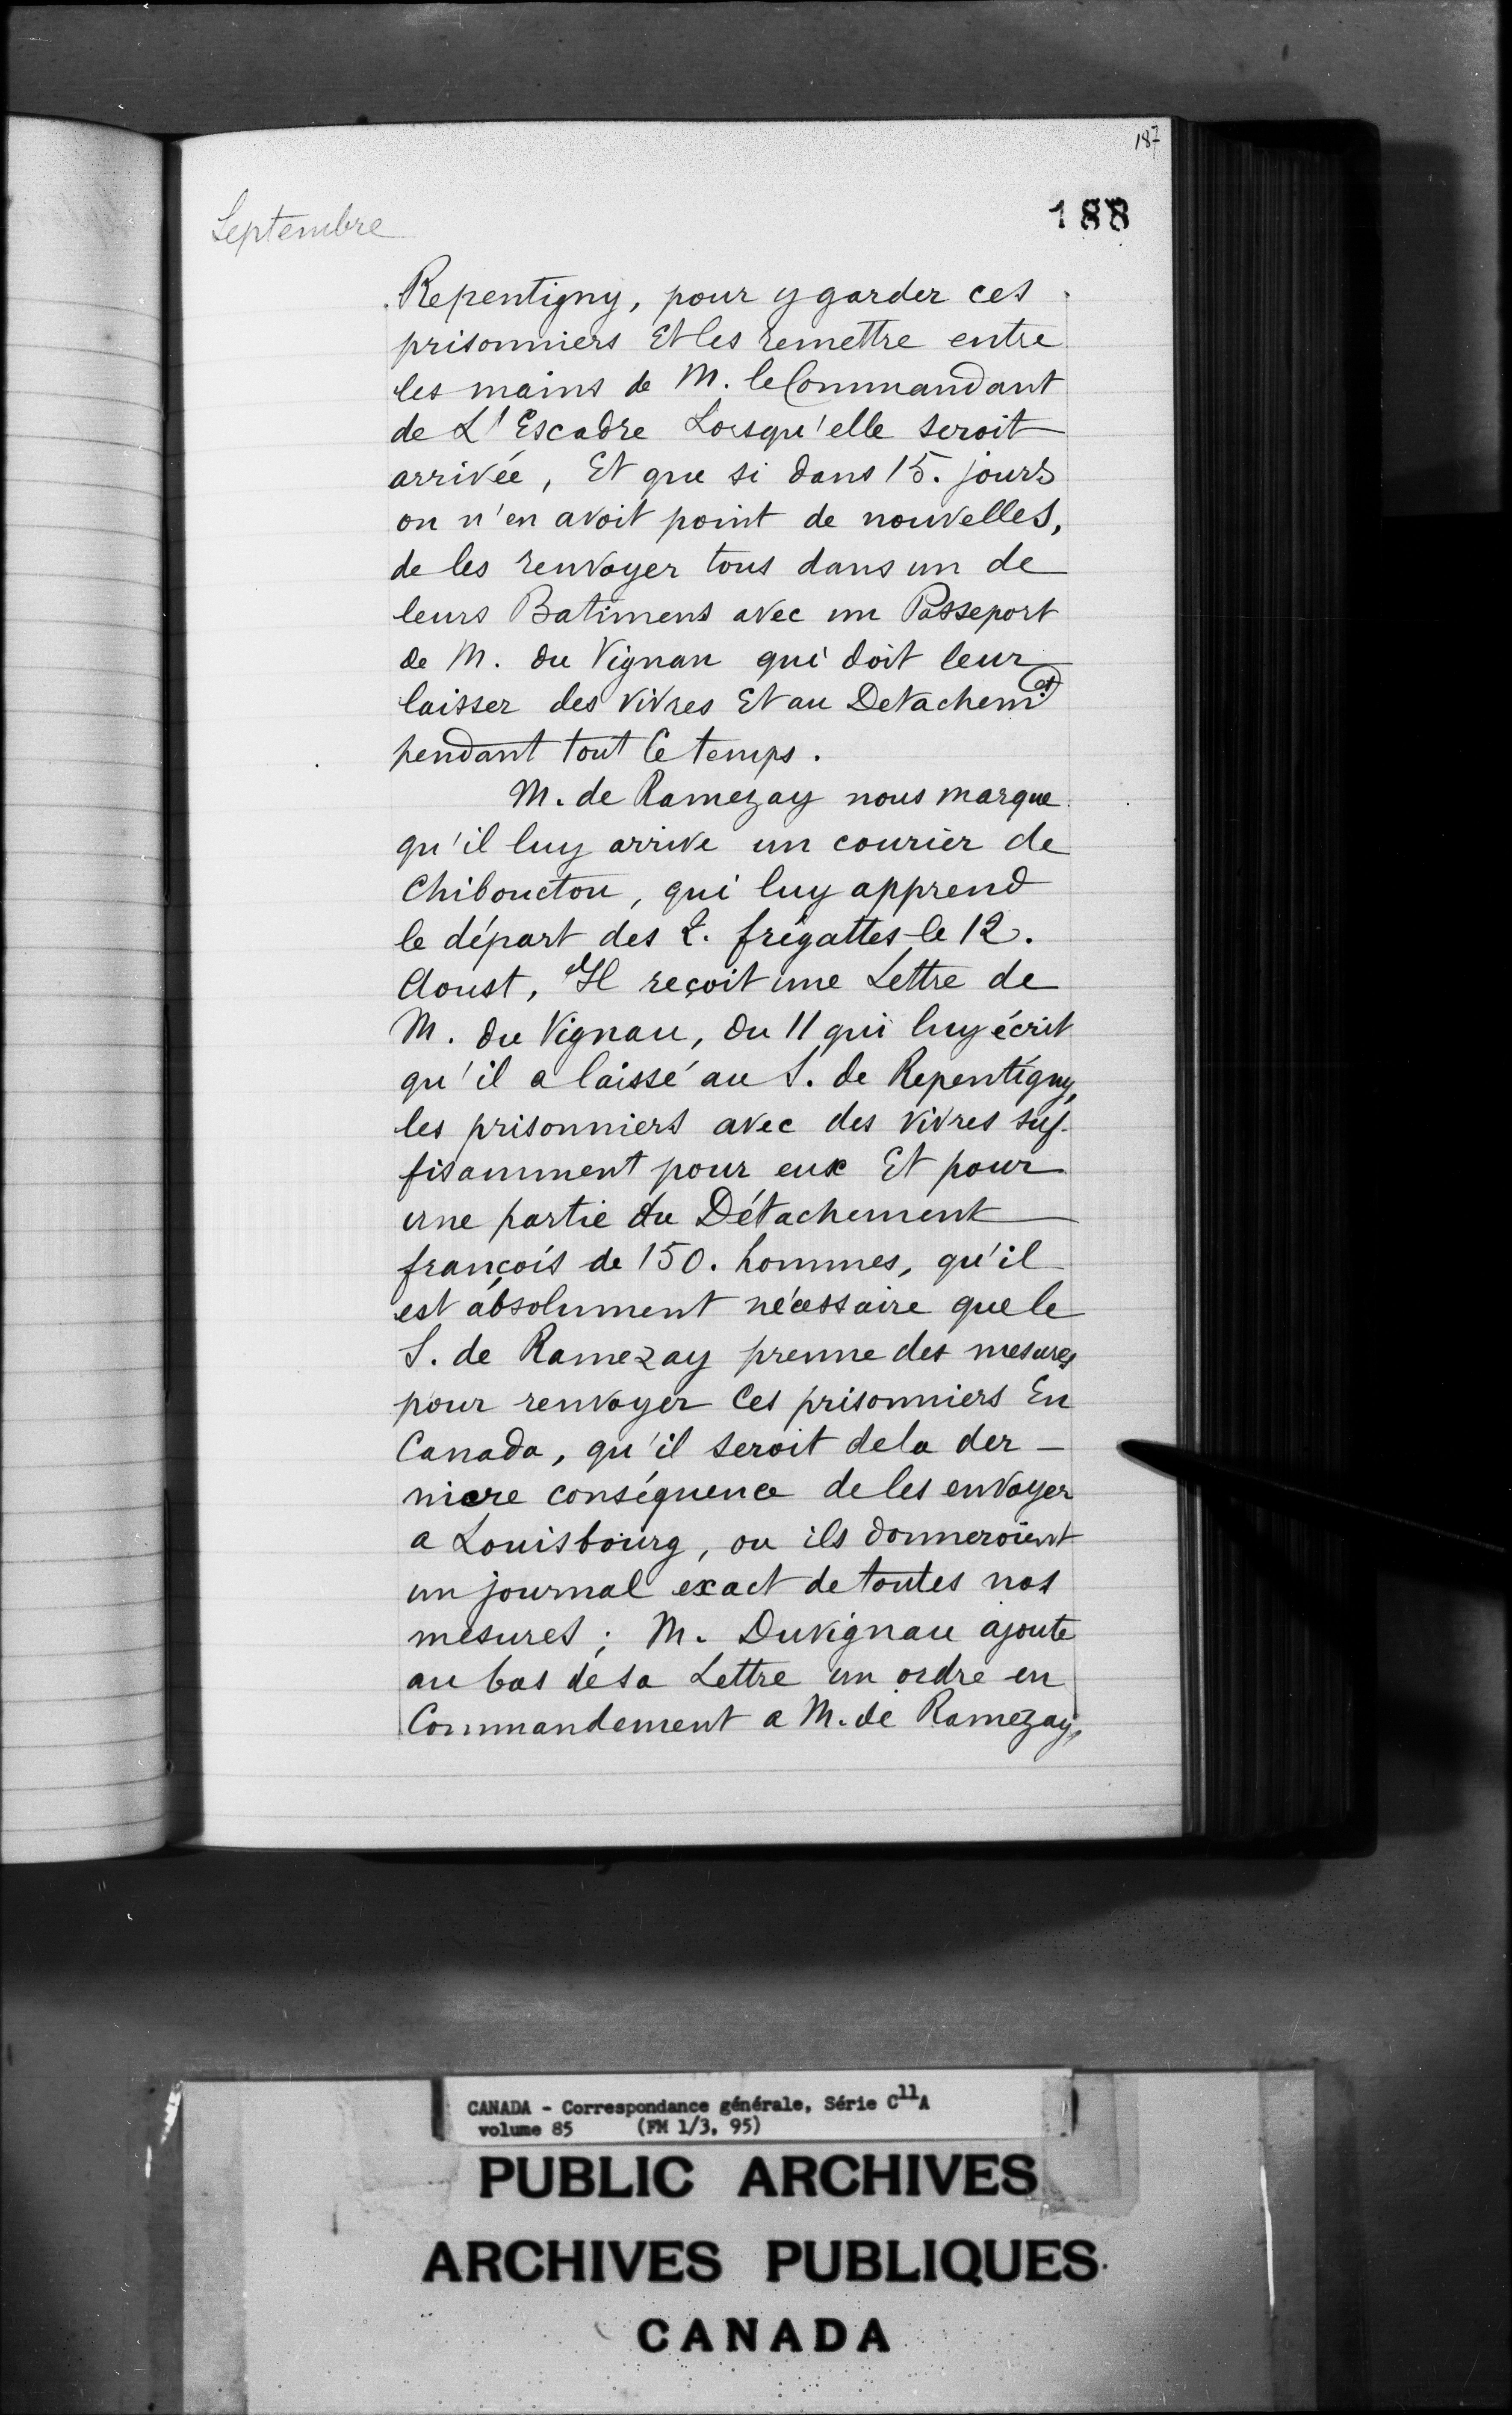 187
Septembre
188
Repentigny, pour y garder ces
prisonniers Et les remettre entre
les mains de M. le Commandant
de L'Escadre Lorsqu'elle seroit
arrivée, Et que si dans 15. jours
on n'en avoit point de nouvelles,
de les renvoyer tous dans un de
leurs Batimens avec un Passeport
de M. du Vignau qui doit leur
laisser des vivres Et au Detachemt
pendant tout Ce temps.
M. de Ramezay nous marque
qu'il luy arrive un courier de
Chibouctou, qui luy apprend
le départ des 2. frégattes le 12.
Aoust, Il reçoit une Lettre de
M. du Vignau, du 11 qui luy écrit
qu'il a laissé au S. de Repentigny,
les prisonniers avec des vivres suf-
fisamment pour eux Et pour
une partie du Détachement
françois de 150. hommes, qu'il
est absolument nécessaire que le
S. de Ramezay prenne des mesures
pour renvoyer Ces prisonniers En
Canada, qu'il seroit dela der-
niere conséquence de les envoyer
a Louisbourg, ou ils donneroient
un journal exact de toutes nos
mesures; M. Duvignau ajoute
au bas de sa Lettre un ordre en
Commandement a M. de Ramezay,
CANADA - Correspondance générale, Série C11A
volume 85 (FM 1/3, 95)
PUBLIC ARCHIVES
ARCHIVES PUBLIQUES
CANADA